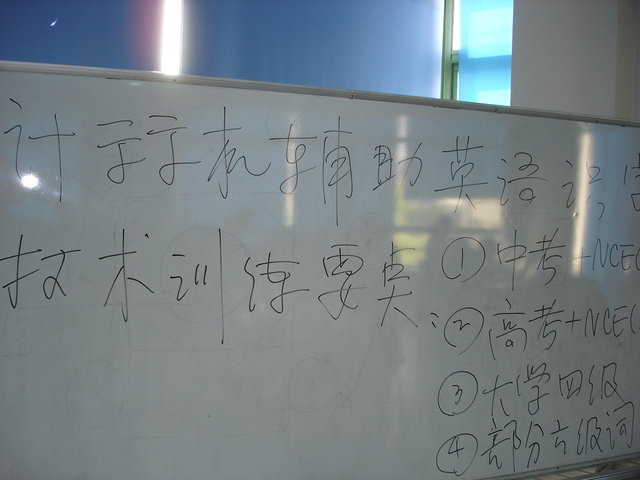 计字字机辅助英语识
技术训练要点:
①中考+NCE
②高考+NCE
③大学四级
④部分六级词